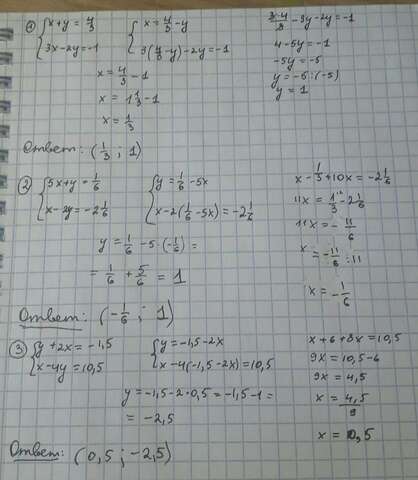 ① { x+y = 4/3
3x-2y = -1
{ x = 4/3 - y
3(4/3 - y) - 2y = -1
3·4/3 - 3y - 2y = -1
4 - 5y = -1
-5y = -5
y = -5 : (-5)
y = 1
x = 4/3 - 1
x = 1 1/3 - 1
x = 1/3
Ответ: (1/3 ; 1)
② { 5x+y = 1/6
x-2y = -2 1/6
{ y = 1/6 - 5x
x-2(1/6 - 5x) = -2 1/6
x - 1/3 + 10x = -2 1/6
11x = 1/3 - 2 1/6
11x = - 11/6
x = - 11/6 : 11
x = - 1/6
y = 1/6 - 5·(-1/6) =
= 1/6 + 5/6 = 1
Ответ: (-1/6 ; 1)
③ { y + 2x = -1,5
x - 4y = 10,5
{ y = -1,5 - 2x
x - 4(-1,5 - 2x) = 10,5
x + 6 + 8x = 10,5
9x = 10,5 - 6
9x = 4,5
x = 4,5/9
x = 0,5
y = -1,5 - 2·0,5 = -1,5 - 1 =
= -2,5
Ответ: (0,5 ; -2,5)